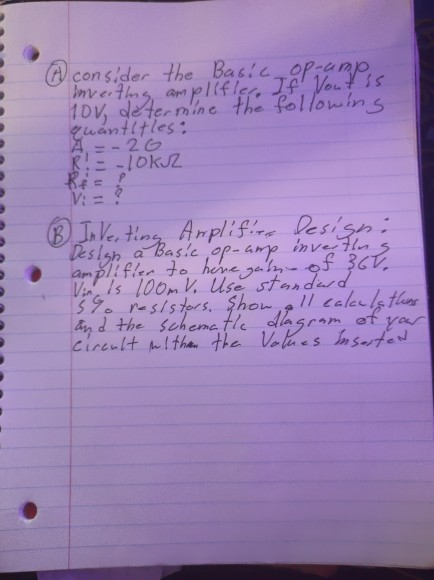 (A) consider the Basic op-amp
inverting amplifier. If Vout is
10V, determine the following
quantities:
A = - 20
Ri = -10kΩ
Rf = ?
Vi = ?
(B) Inverting Amplifier Design:
Design a Basic op-amp inverting
amplifier to have gain of 36V.
Vin is 100mV. Use standard
5% resistors. Show all calculations
and the schematic diagram of your
circuit with the Values inserted